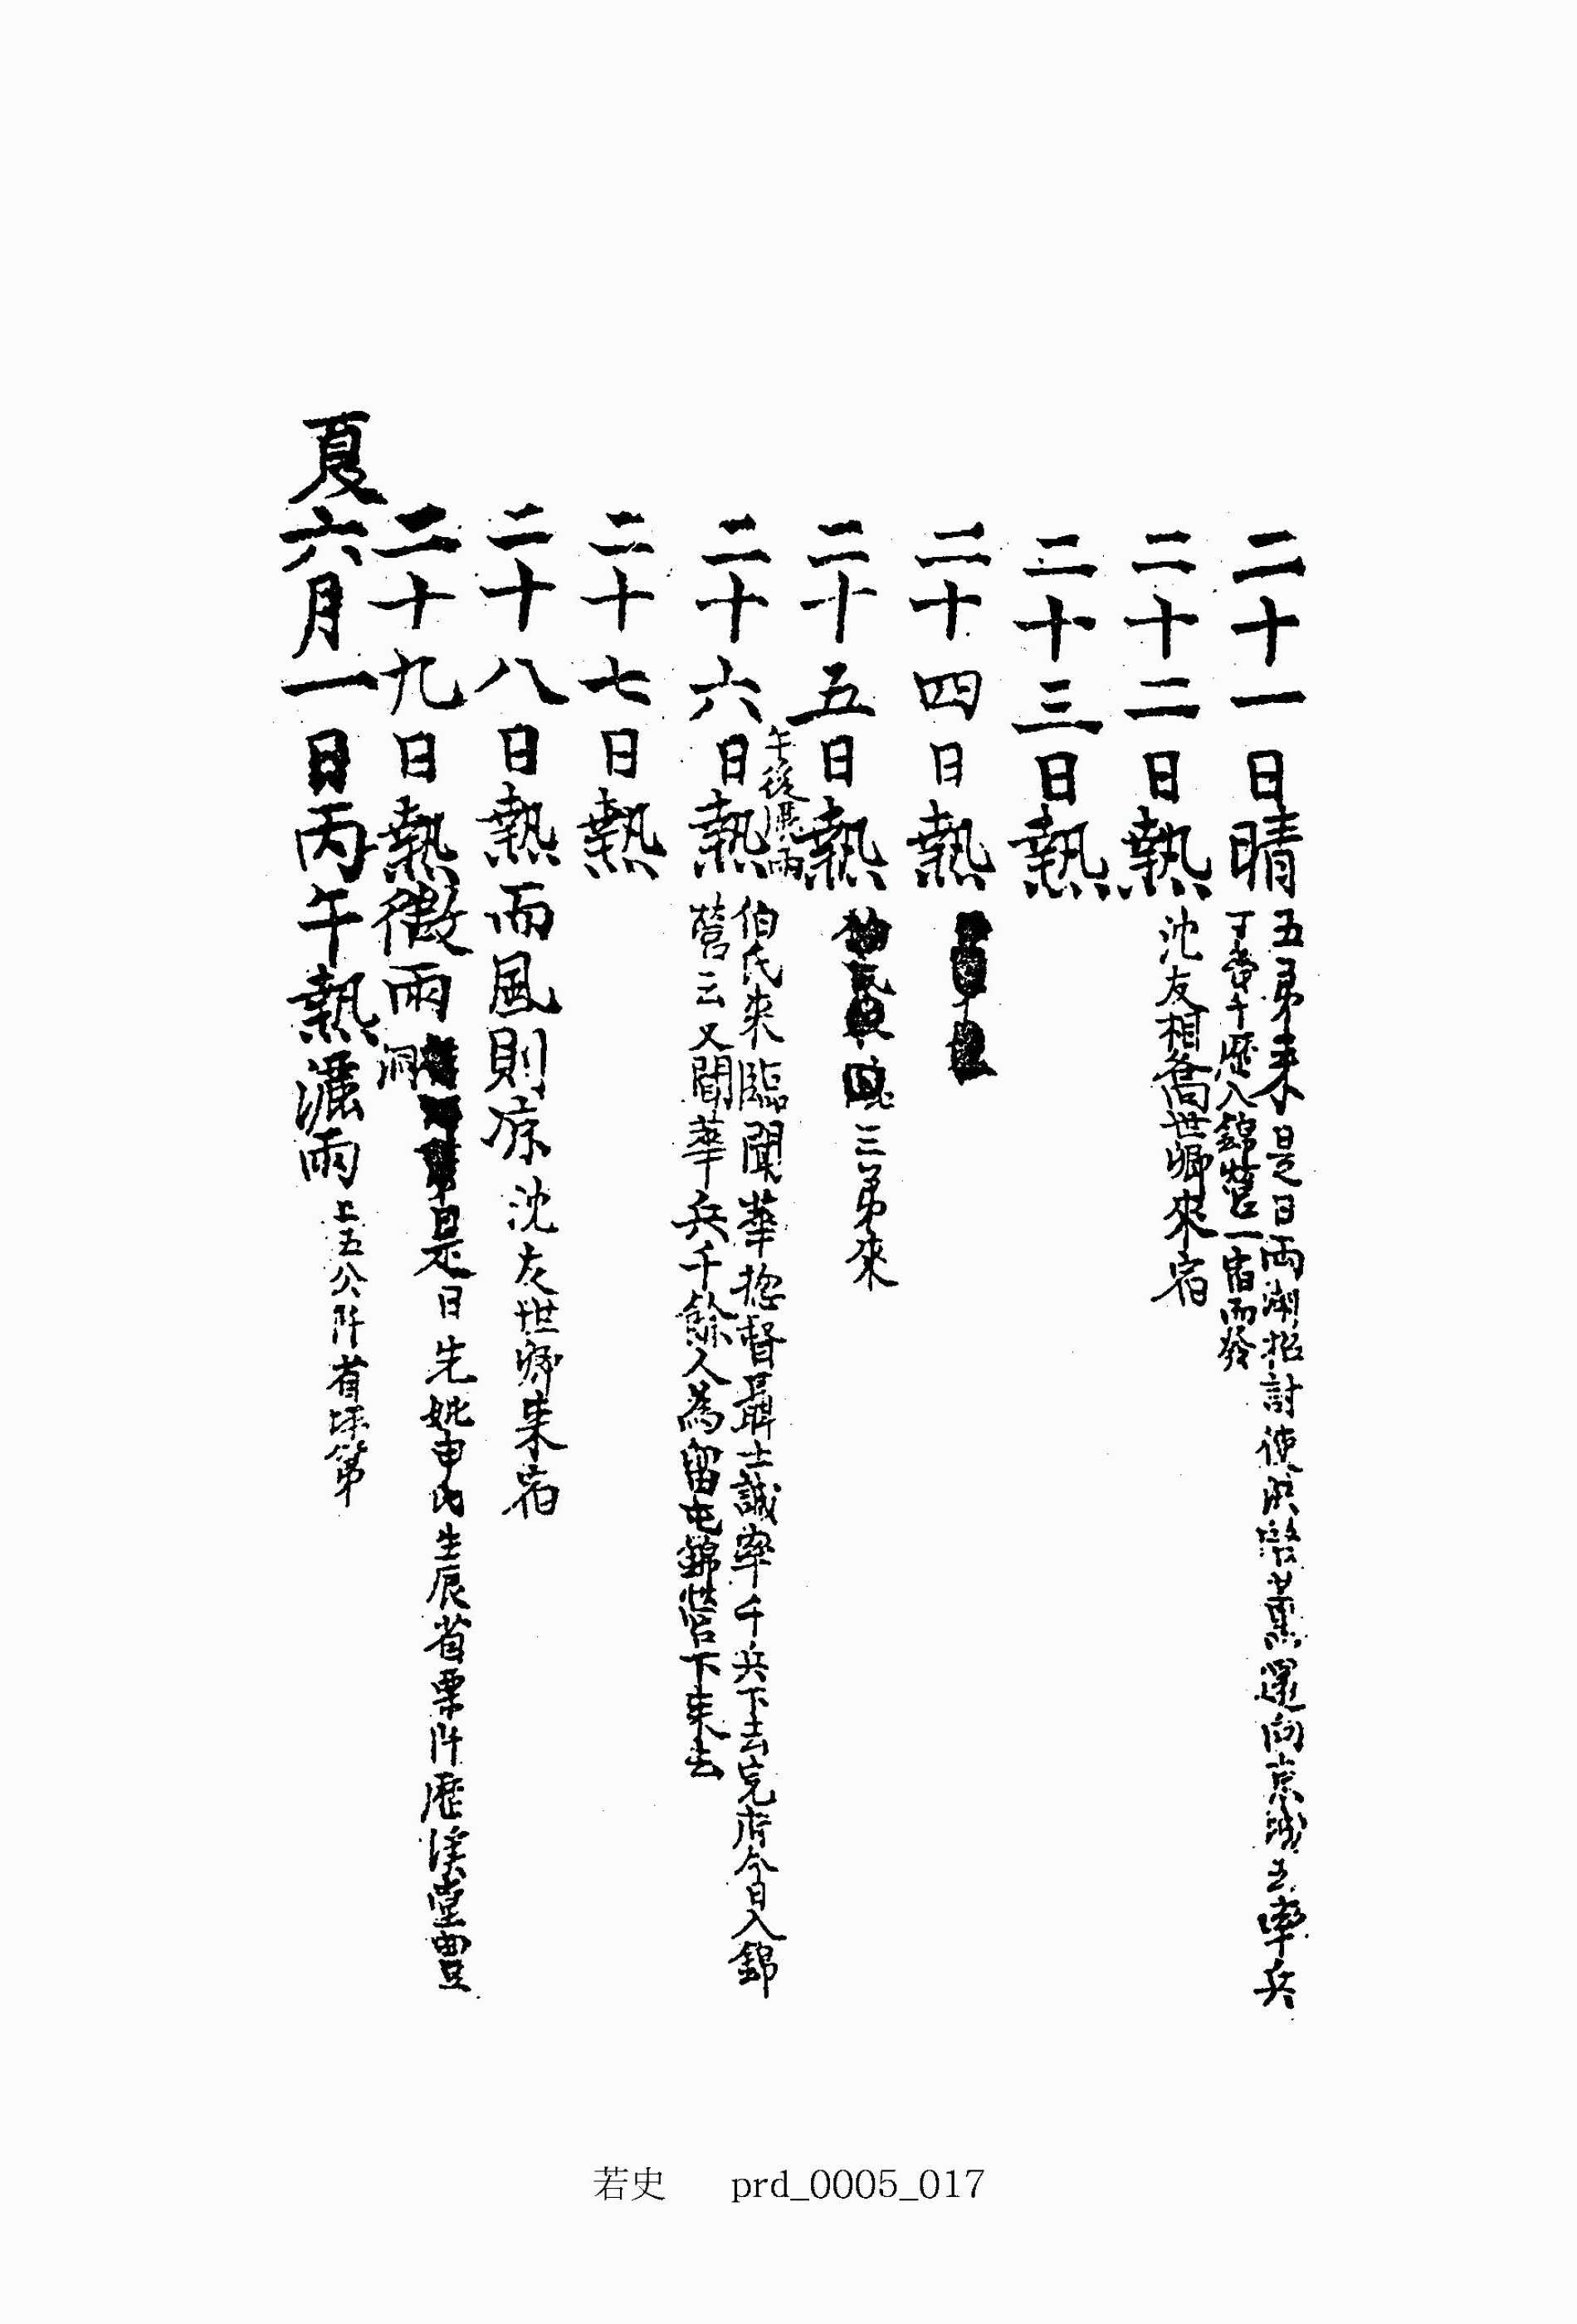 二十一日晴 五弟來是日兩湖招討使洪啓薰還向京城上率兵
丁當午歷入錦營一宿而發
二十二日熱 沈友相喬世卿來宿
二十三日熱
二十四日熱
二十五日熱 三弟來
午後灑雨
二十六日熱 伯氏來臨聞華摠督聶士誠率千兵下去完府今日入錦
營云又聞華兵千餘人為留屯錦營下來去
二十七日熱
二十八日熱雨風則凉 沈友世卿來宿
二十九日熱微雨 是日先妣申氏生辰省栗阡歷溪堂豊
洞
夏六月一日丙午熱灑雨 上五公阡省坪第
若史 prd_0005_017